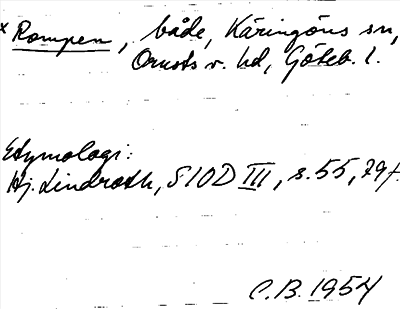 x Rompen, både, Käringöns sn,
Orusts v. hd, Göteb. l.
Etymologi:
Hj. Lindroth, SIOD III, s. 55, 79f.
C.B. 1954